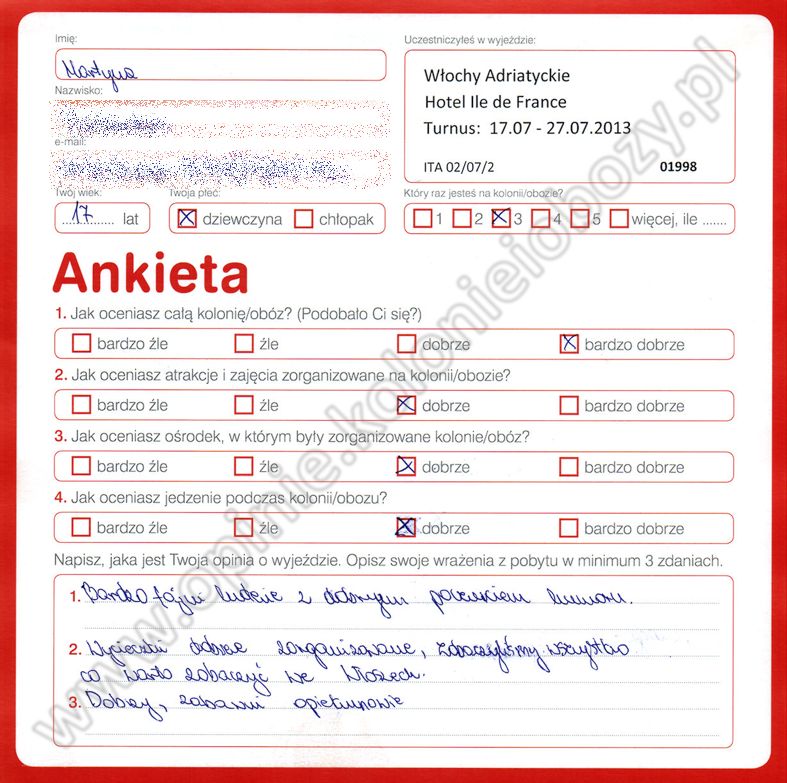 Imię:
Martyna
Nazwisko:
e-mail:
Twój wiek:
17 lat
Twoja płeć:
dziewczyna chłopak
Uczestniczyłeś w wyjeździe:
Włochy Adriatyckie
Hotel Ile de France
Turnus: 17.07 - 27.07.2013
ITA 02/07/2 01998
Który raz jesteś na kolonii/obozie?
1 2 3 4 5 więcej, ile .......
Ankieta
1. Jak oceniasz całą kolonię/obóz? (Podobało Ci się?)
bardzo źle źle dobrze bardzo dobrze
2. Jak oceniasz atrakcje i zajęcia zorganizowane na kolonii/obozie?
bardzo źle źle dobrze bardzo dobrze
3. Jak oceniasz ośrodek, w którym były zorganizowane kolonie/obóz?
bardzo źle źle dobrze bardzo dobrze
4. Jak oceniasz jedzenie podczas kolonii/obozu?
bardzo źle źle dobrze bardzo dobrze
Napisz, jaka jest Twoja opinia o wyjeździe. Opisz swoje wrażenia z pobytu w minimum 3 zdaniach.
1. Bardzo fajni ludzie z dobrym poczuciem humoru.
2. Wycieczki dobrze zorganizowane, zobaczyliśmy wszystko
co warto zobaczyć we Włoszech.
3. Dobrzy, zabawni opiekunowie
www.opinie.kolonieiobozy.pl